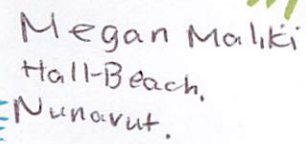 Megan Maliki
Hall-Beach,
Nunavut.